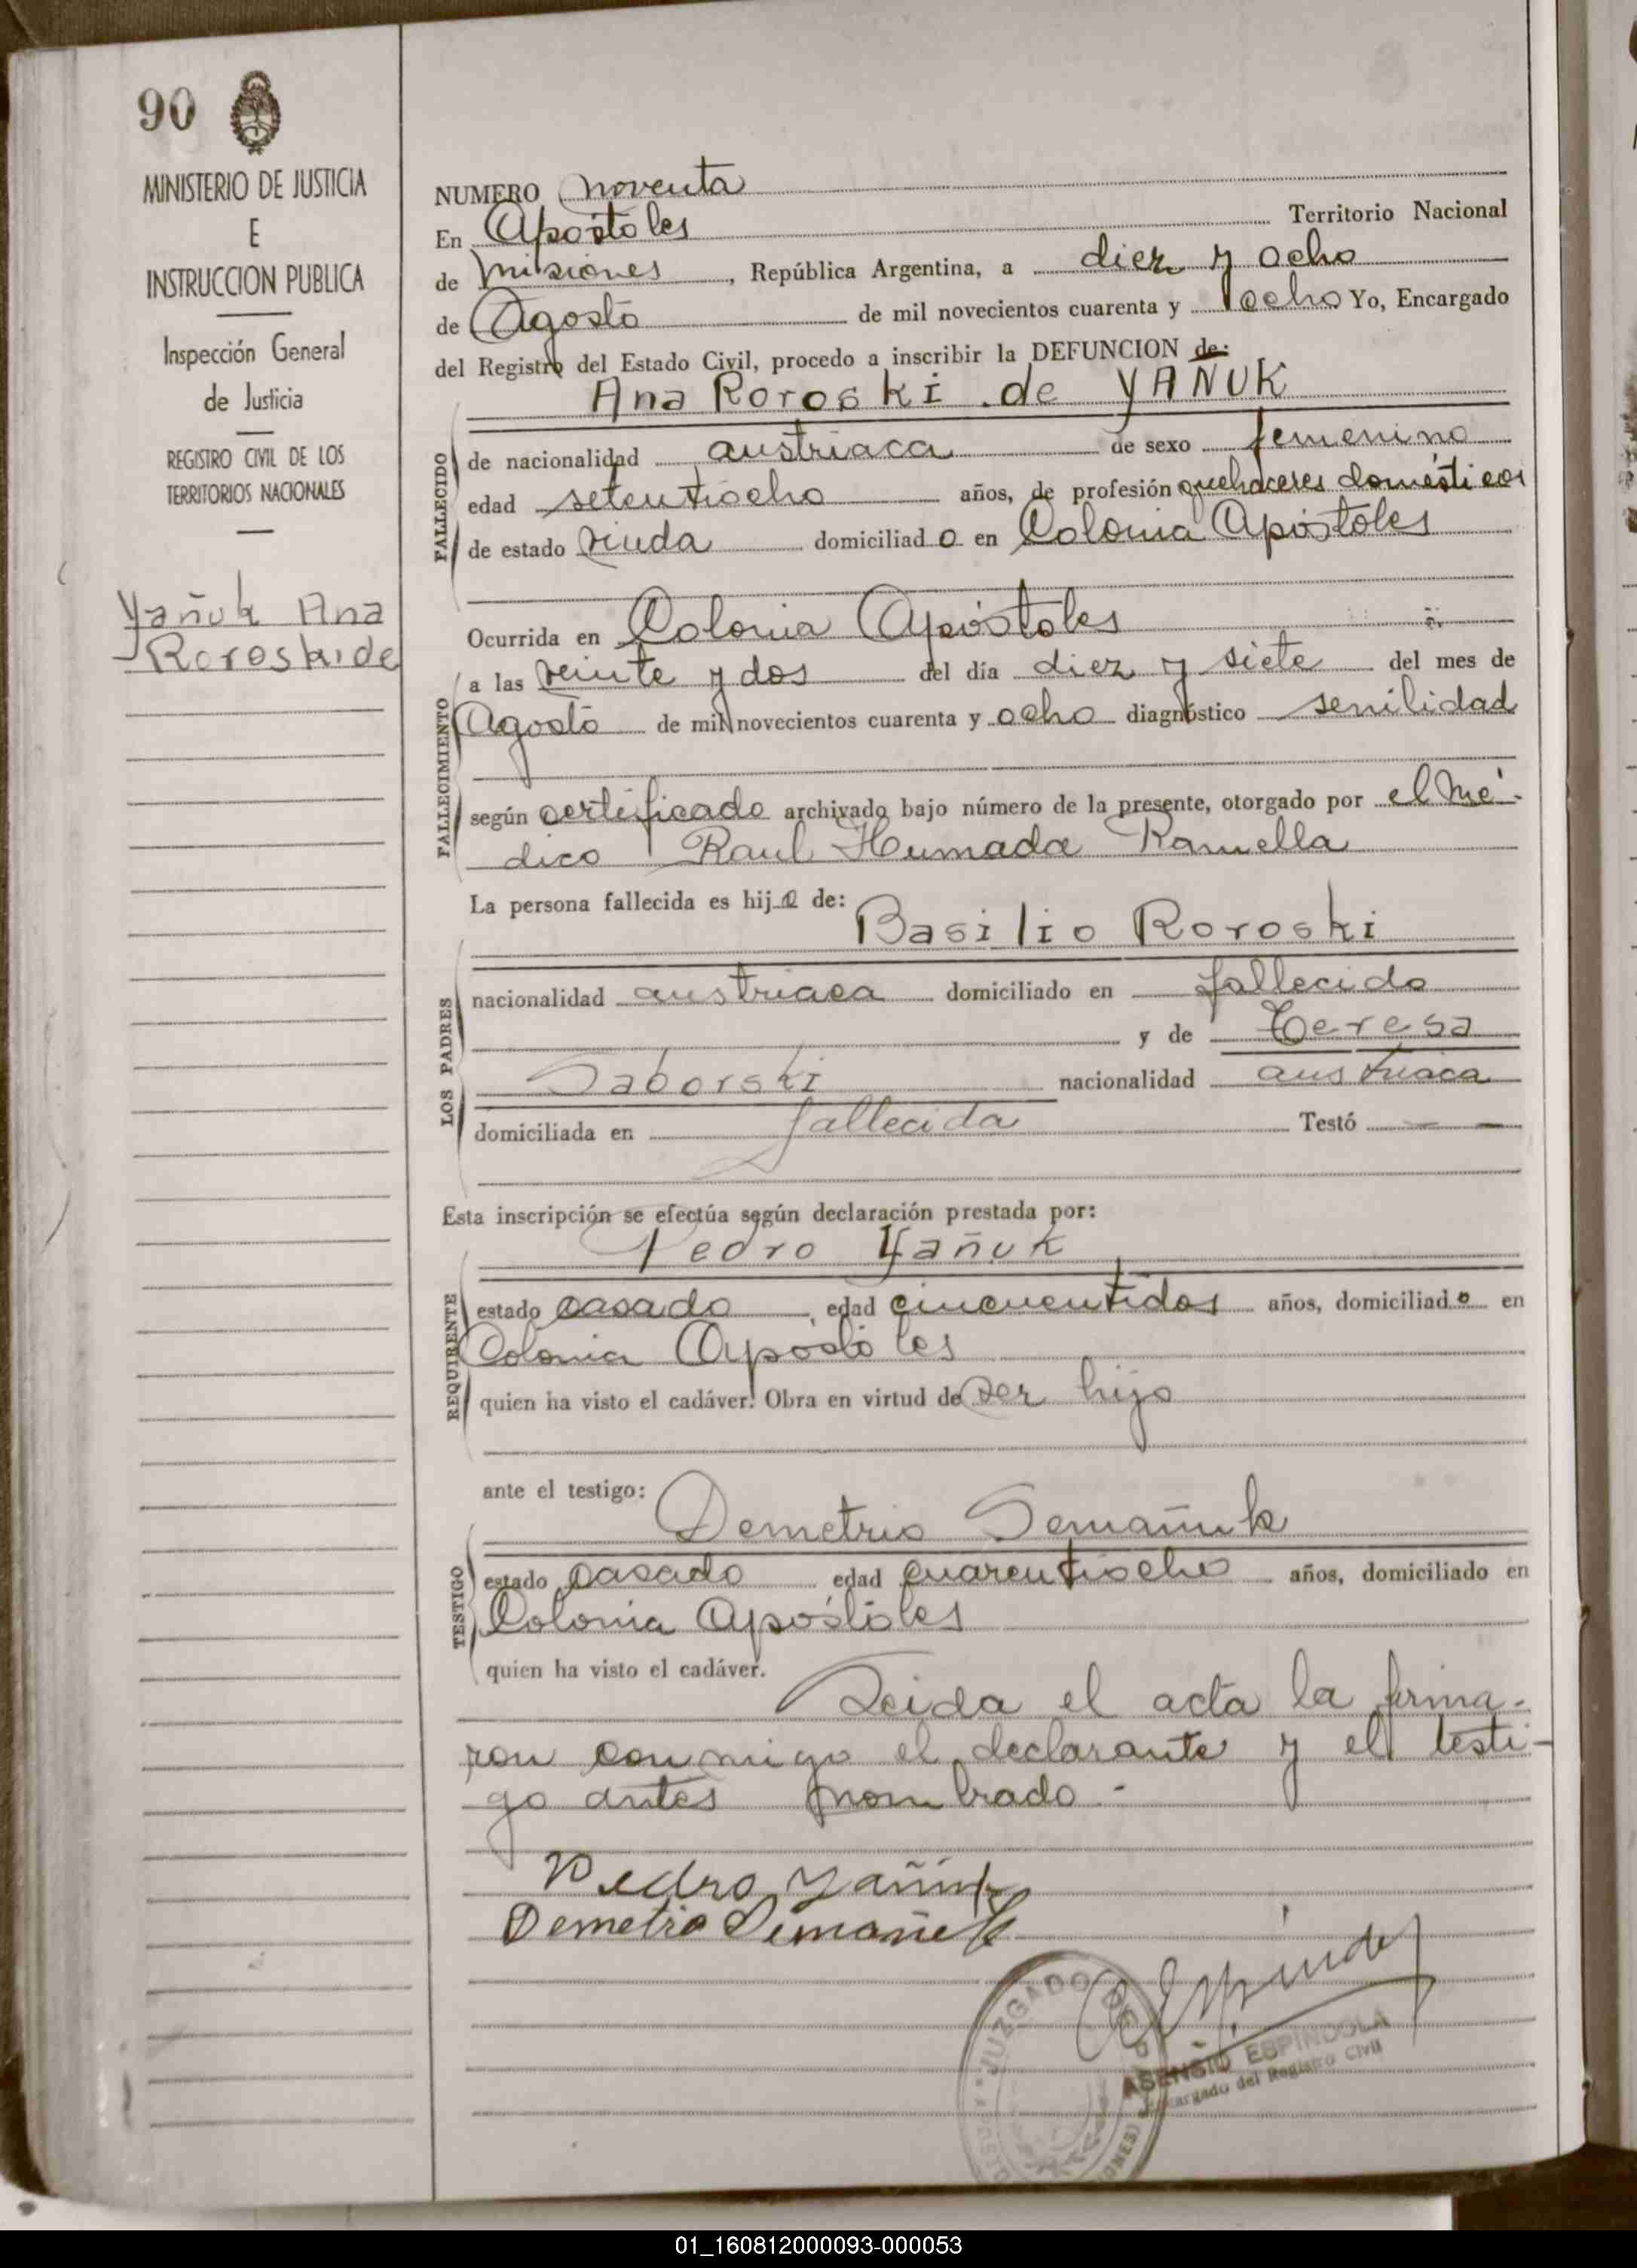 90
MINISTERIO DE JUSTICIA
E
INSTRUCCION PUBLICA
Inspección General
de Justicia
REGISTRO CIVIL DE LOS
TERRITORIOS NACIONALES
Yañuk Ana
Roroski de
NUMERO noventa
En Apóstoles Territorio Nacional
de Misiones, República Argentina, a diez y ocho
de Agosto de mil novecientos cuarenta y ocho Yo, Encargado
del Registro del Estado Civil, procedo a inscribir la DEFUNCION de:
Ana Roroski de YAÑUK
FALLECIDO
de nacionalidad austriaca de sexo femenino
edad setentiocho años, de profesión quehaceres domésticos
de estado viuda domiciliado en Colonia Apóstoles
FALLECIMIENTO
Ocurrida en Colonia Apóstoles
a las veinte y dos del día diez y siete del mes de
Agosto de mil novecientos cuarenta y ocho diagnóstico senilidad
según certificado archivado bajo número de la presente, otorgado por el mé-
dico Raul Humada Ramella
La persona fallecida es hija de:
LOS PADRES
Basilio Roroski
nacionalidad austriaca domiciliado en fallecido
y de Teresa
Saborski nacionalidad austriaca
domiciliada en fallecida Testó — —
Esta inscripción se efectúa según declaración prestada por:
REQUIRENTE
Pedro Yañuk
estado casado, edad cincuentidos años, domiciliado en
Colonia Apóstoles
quien ha visto el cadáver. Obra en virtud de ser hijo
ante el testigo:
TESTIGO
Demetrio Semañuk
estado casado edad cuarentiocho años, domiciliado en
Colonia Apóstoles
quien ha visto el cadáver.
Leida el acta la firma-
ron conmigo el declarante y el testi-
go antes nombrado.-
Pedro Yañuk
Demetrio Simañuk
JUZGADO DE
ASENSIO ESPINDOLA
Encargado del Registro Civil
01_160812000093-000053